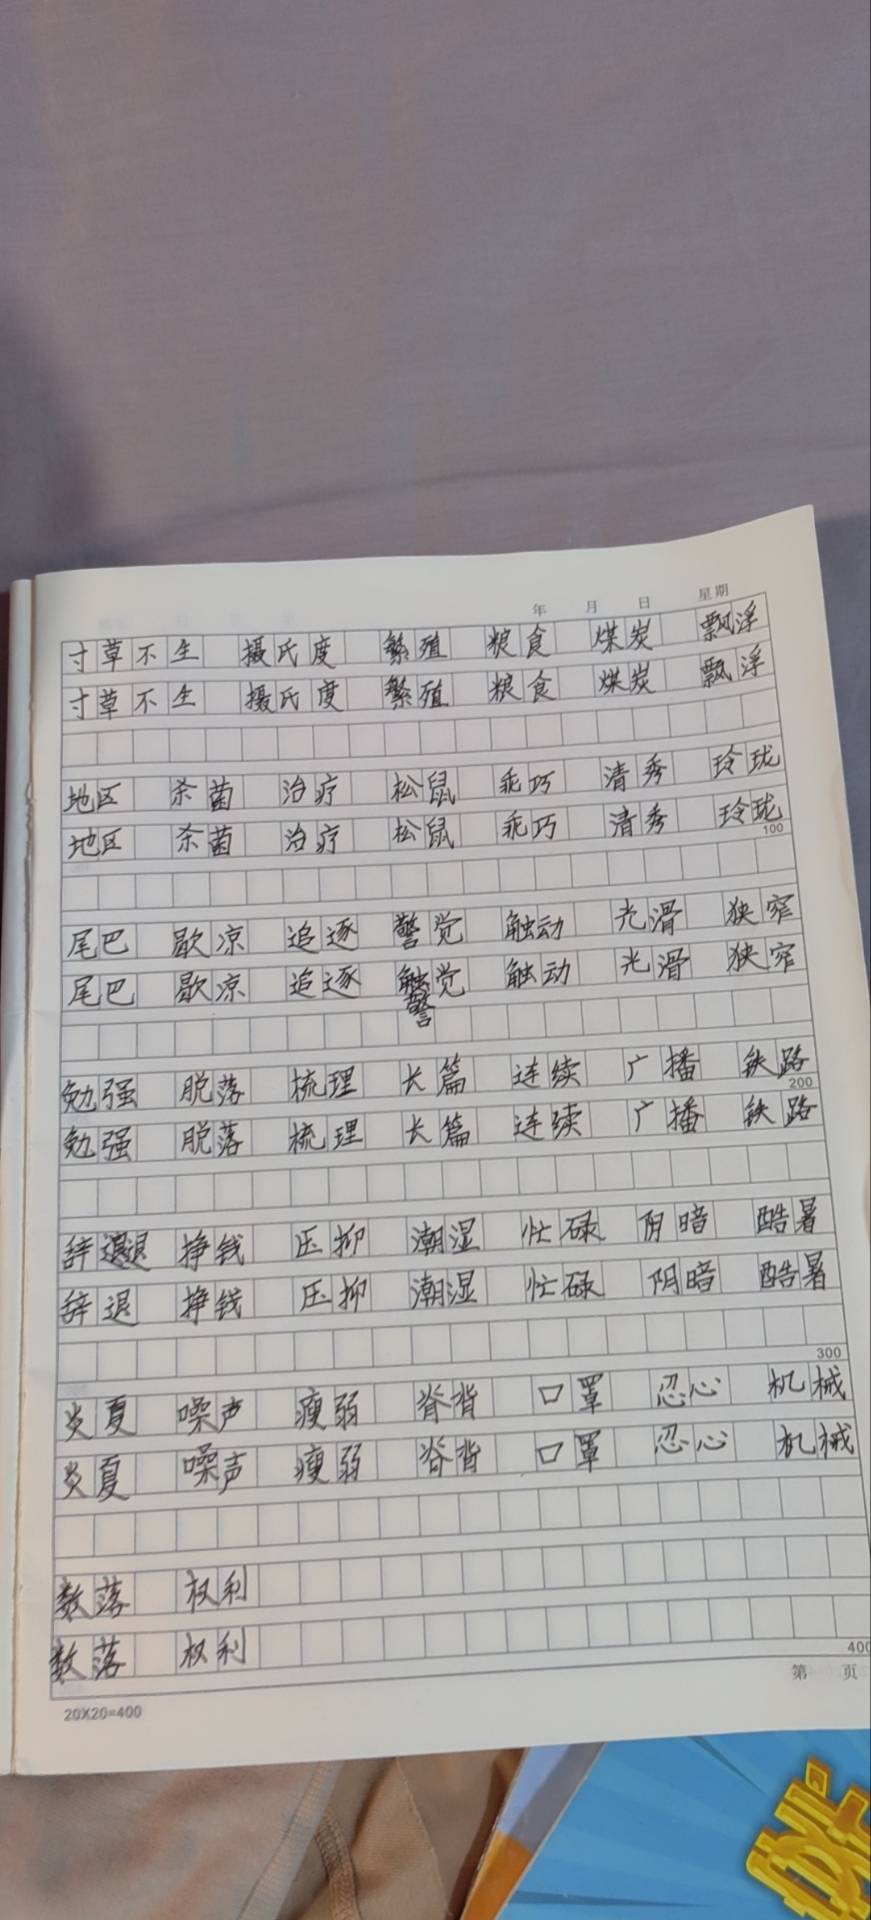 年 月 日 星期
寸草不生 摄氏度 繁殖 粮食 煤炭 飘浮
寸草不生 摄氏度 繁殖 粮食 煤炭 飘浮
地区 杀菌 治疗 松鼠 乖巧 清秀 玲珑
地区 杀菌 治疗 松鼠 乖巧 清秀 玲珑
100
尾巴 歇凉 追逐 警觉 触动 光滑 狭窄
尾巴 歇凉 追逐 触觉 触动 光滑 狭窄
警
勉强 脱落 梳理 长篇 连续 广播 铁路
200
勉强 脱落 梳理 长篇 连续 广播 铁路
辞退 挣钱 压抑 潮湿 忙碌 阴暗 酷暑
辞退 挣钱 压抑 潮湿 忙碌 阴暗 酷暑
300
炎夏 噪声 瘦弱 脊背 口罩 忍心 机械
炎夏 噪声 瘦弱 脊背 口罩 忍心 机械
数落 权利
数落 权利
400
第 页
20X20=400